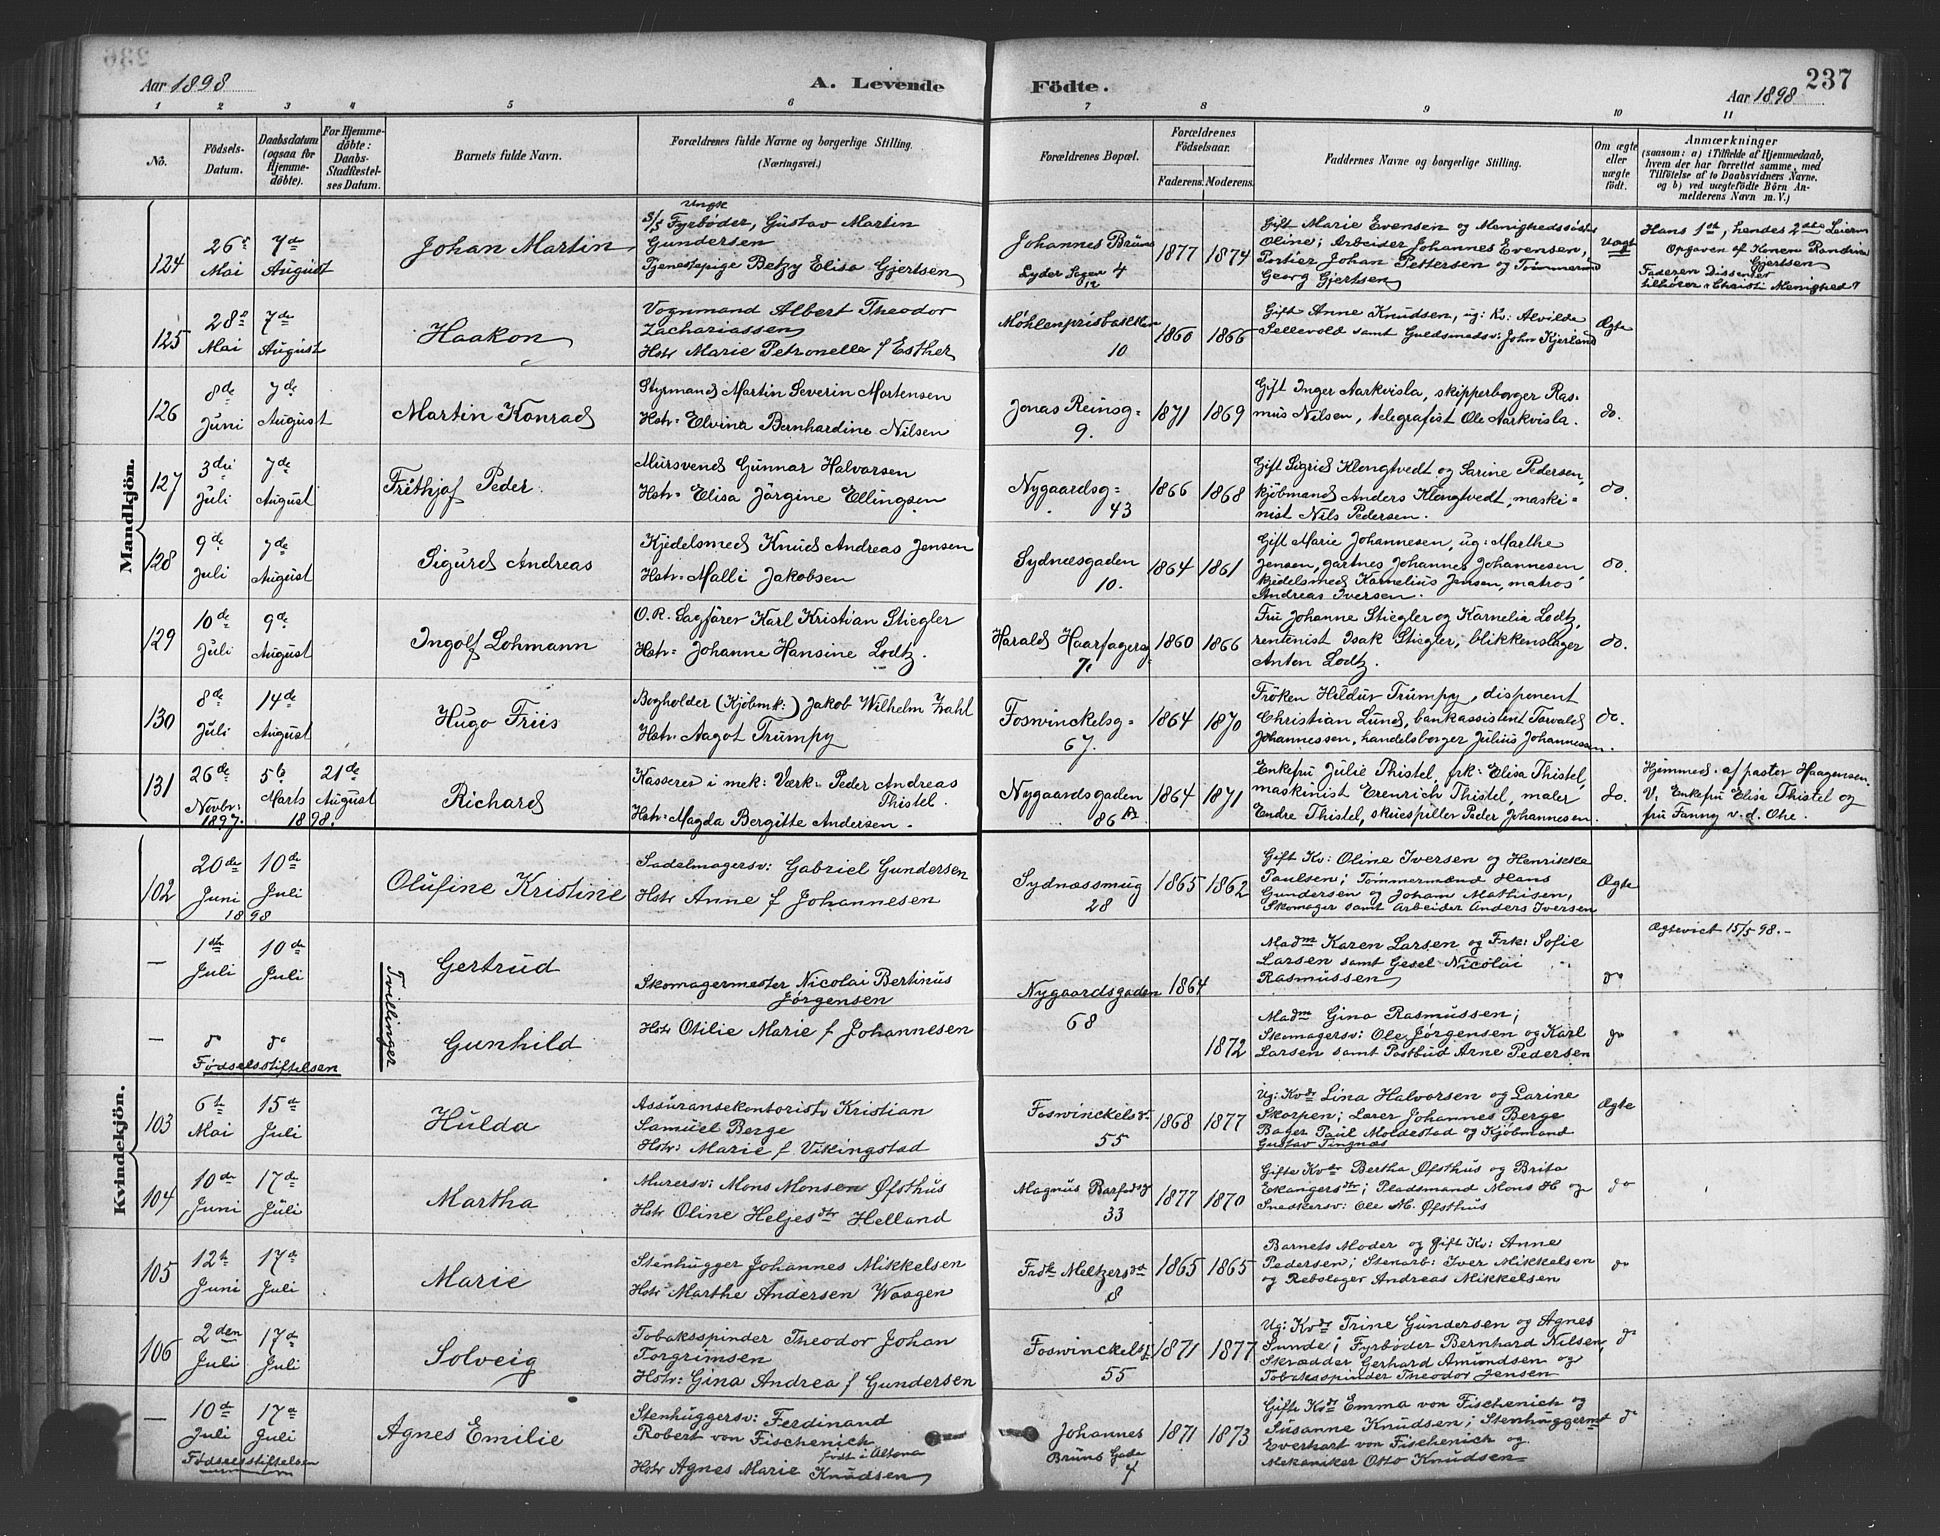 Aar 1898
A. Levende
Födte.
Aar 1898
237
1 2 3 4 5 6 7 8 9 10 11
No.
Födsels-Datum.
Daabsdatum (ogsaa for Hjemmedöbte).
For Hjemmedöbte: Daabs-Stadfæstelses Datum.
Barnets fulde Navn.
Forældrenes fulde Navne og borgerlige Stilling. (Næringsvei.)
Forældrenes Bopæl.
Forældrenes Födselsaar.
Faderens. Moderens.
Faddernes Navne og borgerlige Stilling.
Om ægte eller uægte födt.
Anmærkninger
(saasom: a) i Tilfælde af Hjemmedaab, hvem der har forrettet samme, med Tilföielse af to Daabsvidners Navne, og b) ved uægtefödte Börn Anmelderens Navn m. V.)
Mandkjön.
124
26de Mai
7de August
Johan Martin
Ungk
S/S Fyrbøder, Gustav Martin
Gundersen
Tjenestepige Betzy Elisa Gjertsen
Johannes Bruns 4
Lyder Sagen 12
1877 1874
Gift Marie Evensen og Menighedssøster
Oline; Arbeider Johannes Evensen,
Portier Johan Pettersen og Tømmermd
Georg Gjertsen
Uægt
Hans 1st, hendes 2det Leierm
Opgaven af Konen Randina
Gjertsen
Faderen Dissenter
tilhører "Christi Menighed"
125
28de Mai
7de August
Haakon
Vognmand Albert Theodor
Zachariassen
Hstr Marie Petronelle f Esther
Møhlenprisbakken
10
1860 1866
Gift Anne Knudsen, ug: Kv: Alvilde
Sellevold samt Guldsmedsv: John Kjerland
Ægte
126
8de Juni
7de August
Martin Konrad
Styrmand Martin Severin Mortensen
Hstr: Elvina Bernhardine Nilsen
Jonas Reinsg=
9.
1871 1869
Gift Inger Aarkvisla, skipperborger Ras-
mus Nilsen, telegrafist Ole Aarkvisla.
do.
127
3die Juli
7de August
Frithjof Peder
Mursvend Gunnar Halvorsen
Hstr: Elisa Jørgine Ellingsen
Nygaardsg=
43
1866 1868
Gift Sigrid Klongtvedt og Sarine Pedersen,
kjøbmand Anders Klongtvedt, maski-
nist Nils Pedersen.
do.
128
9de Juli
7de August
Sigurd Andreas
Kjedelsmed Knud Andreas Jensen
Hstr: Malli Jakobsen
Sydnæsgaden
10.
1864 1861
Gift Marie Johannesen, ug: Marthe
Jensen, gartner Johannes Johannesen
kjedelsmed Kornelius Jensen, matros
Andreas Iversen.
do.
129
10de Juli
9de August
Ingolf Lohmann
O.R. Sagfører Karl Kristian Stiegler
Hstr: Johanne Hansine Lodtz.
Harald Haarfagersg
7I
1860 1866
Fru Johanne Stiegler og Karnelia Lodtz,
rentenist Isak Stiegler, blikkenslager
Anton Lodtz.
do.
130
8de Juli
14de August
Hugo Friis
Bogholder (Kjøbmk:) Jakob Wilhelm Zahl
Hstr: Aagot Trumpy
Foswinckelsg=
67.
1864 1870
Frøken Hildur Trumpy, disponent
Christian Lund, bankassistent Torvald
Johannessen, handelsborger Julius Johannessen.
do.
131
26de Novbr: 1897.
5te Marts
21de August
1898.
Richard
Kasserer i mek: Værk: Peder Andreas
Thistel.
Hstr: Magda Bergitte Andersen.
Nygaardsgaden
86
1864 1871
Enkefru Julie Thistel, frk: Elisa Thistel,
maskinist Erenrich Thistel, maler
Endre Thistel, skuespiller Peder Johannesen.
do.
Hjemmed. af pastor Haagensen.
V. Enkefru Elise Thistel og
fru Fanny v. d. Ohe.
Kvindekjön.
102
20de Juni 1898
10de Juli
Olufine Kristine
Sadelmagersv: Gabriel Gundersen
Hstr Anne f Johannesen
Sydnæssmug
28
1865 1862
Gift Kv: Oline Iversen og Henrikke
Paulsen; Tømmermænd Hans
Gundersen og Johan Mathisen,
Skomager samt Arbeider Anders Iversen
Ægte
—
1ste Juli
10de Juli
Tvillinger
Gertrud
Skomagermester Nicolai Bertinus
Jørgensen
Hstr Otilie Marie f Johannesen
Nygaardsgaden
68
1864
1872
Madm Karen Larsen og Frk: Sofie
Larsen samt Gesel Nicolai
Rasmussen
do
Ægteviet 15/5 98.-
—
do do
Fødselsstiftelsen
Gunhild
Madm Gina Rasmussen;
Skomagersv: Ole Jørgensen og Karl
Larsen samt Postbud Arne Pedersen
do
103
6te Mai
15de Juli
Hulda
Assuransekontorist Kristian
Samuel Berge
Hstr: Marie f Vikingstad
Foswinckelsgt
55
1868 1877
Ug: Kvdr Lina Halvorsen og Larine
Skorpen; Lærer Johannes Berge
Bager Paul Moldestad og Kjøbmand
Gustav Tingnæs
Ægte
104
10de Juni
17de Juli
Martha
Murersv: Mons Monsen Øfsthus
Hstr Oline Heljesdtr Helland
Magnus Barfodsg
33
1877 1870
Gifte Kvdr Bertha Øfsthus og Brita
Ekangersdtr; Pladsmand Mons H og
Snedkersv: Ole M. Øfsthus
do
105
12te Juni
17de Juli
Marie
Stenhugger Johannes Mikkelsen
Hstr Marthe Andersen Waagen
Frdk Meltzersgt
8
1865 1865
Barnets Moder og Gift Kv: Anne
Pedersen; Stenarb: Iver Mikkelsen
og Rebslager Andreas Mikkelsen
do
106
2den Juli
17de Juli
Solveig
Tobaksspinder Theodor Johan
Torgrimsen
Hstr: Gina Andrea f Gundersen
Foswinckelsgt
55
1871 1877
Ug: Kvdr Trine Gundersen og Agnes
Sunde; Fyrbøder Bernhard Nilsen,
Skrædder Gerhard Amundsen og
Tobaksspinder Theodor Jensen
do
—
10de Juli
17de Juli
Fødselsstiftelsen
Agnes Emilie
Stenhuggersv: Ferdinand
Robert von Fischenich
født i Altona
Hstr Agnes Marie Knudsen
Johannes
Bruns Gade
4
1871 1873
Gifte Kvdr Emma von Fischenich og
Susanne Knudsen; Stenhuggermst
Everhart von Fischenich og
Mekaniker Otto Knudsen
do